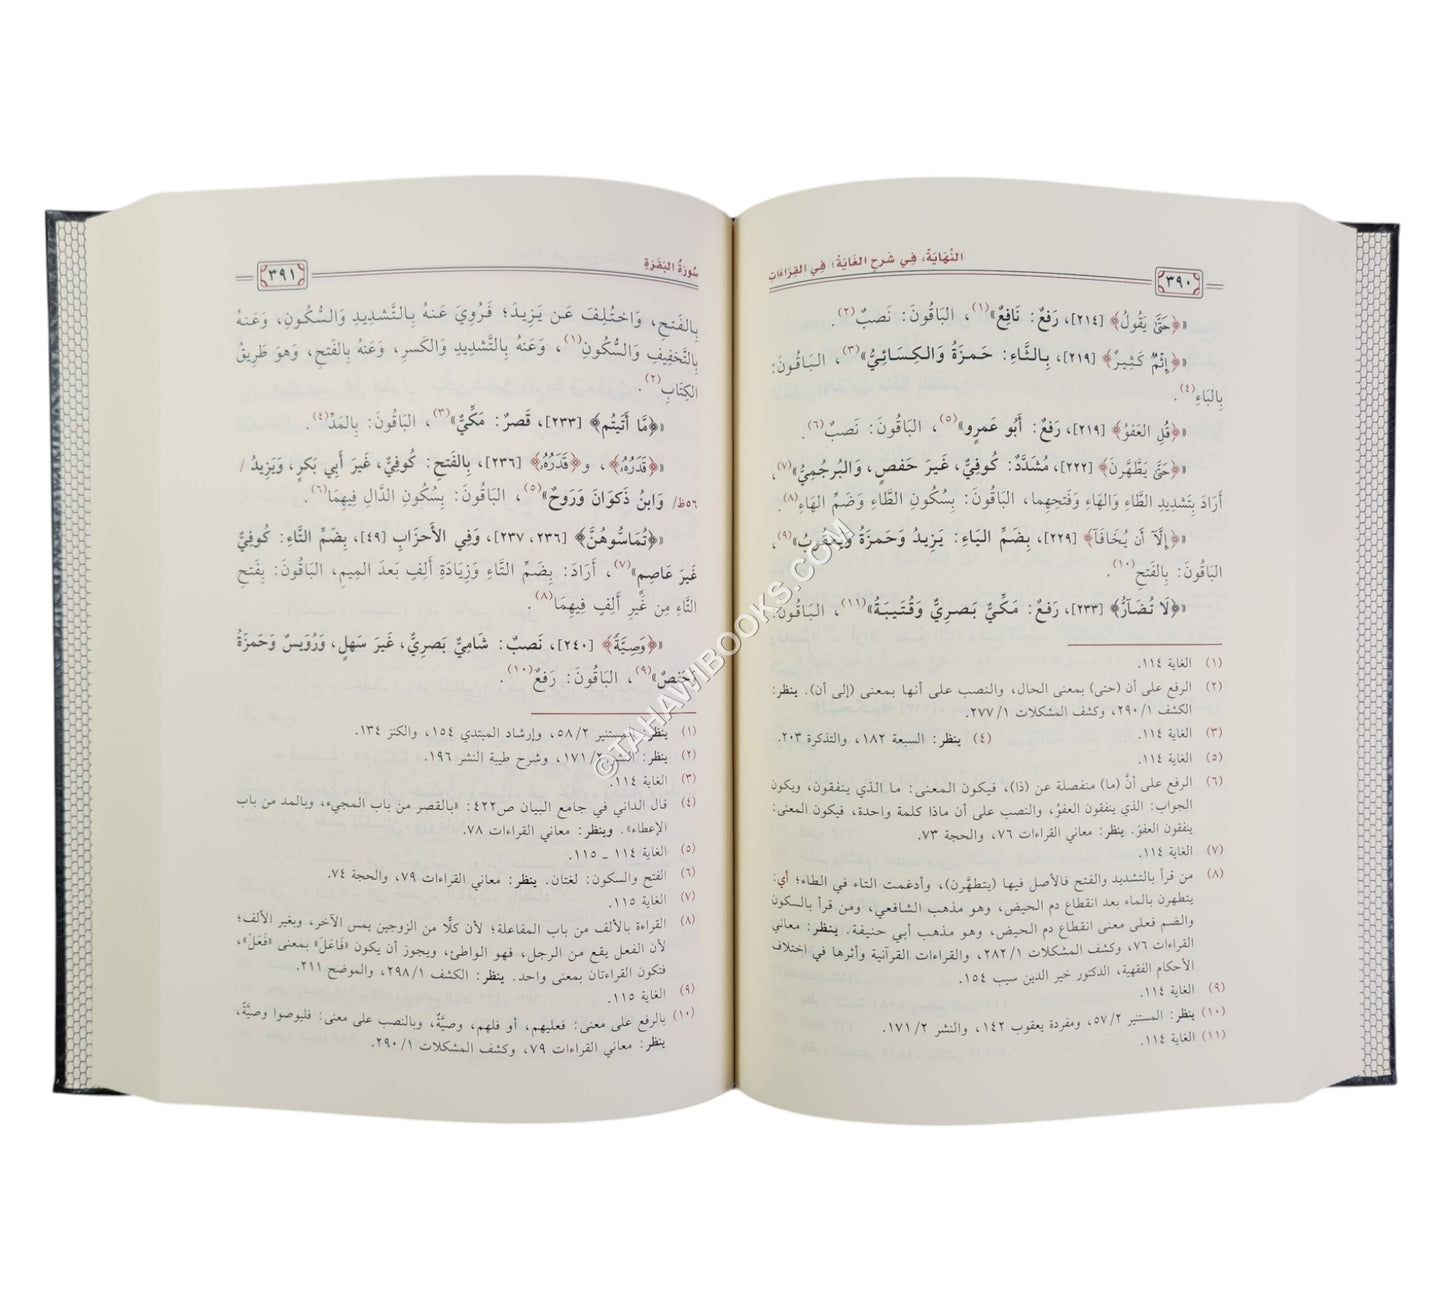 النِّهَايَةُ، فِي شَرحِ الغَايَةِ؛ فِي القِرَاءَاتِ
٣٩٠
«﴿حَتَّىٰ يَقُولُ﴾ [٢١٤]، رَفعٌ: نَافِعٌ»(١)، البَاقُونَ: نَصبٌ(٢).
«﴿إِثْمٌ كَثِيرٌ﴾ [٢١٩]، بِالثَّاءِ: حَمزَةُ وَالكِسَائِيُّ»(٣)، البَاقُونَ:
بِالبَاءِ(٤).
«﴿قُلِ العَفوُ﴾ [٢١٩]، رَفعٌ: أَبُو عَمرٍو»(٥)، البَاقُونَ: نَصبٌ(٦).
«﴿حَتَّىٰ يَطَّهَّرنَ﴾ [٢٢٢]، مُشَدَّدٌ: كُوفِيٌّ، غَيرَ حَفصٍ، وَالبُرجُمِيُّ»(٧)،
أَرَادَ بِتَشدِيدِ الطَّاءِ وَالهَاءِ وَفَتحِهِما، البَاقُونَ: بِسُكُونِ الطَّاءِ وَضَمِّ الهَاءِ(٨).
«﴿إِلَّآ أَن يُخَافَآ﴾ [٢٢٩]، بِضَمِّ اليَاءِ: يَزِيدُ وَحَمزَةُ وَيَعقُوبُ»(٩)،
البَاقُونَ: بِالفَتحِ(١٠).
«﴿لَا تُضَارُّ﴾ [٢٣٣]، رَفعٌ: مَكِّيٌّ بَصرِيٌّ وَقُتَيبَةُ»(١١)، البَاقُونَ:
(١) الغاية ١١٤.
(٢) الرفع على أن (حتى) بمعنى الحال، والنصب على أنها بمعنى (إلى أن). ينظر:
الكشف ١/ ٢٩٠، وكشف المشكلات ١/ ٢٧٧.
(٣) الغاية ١١٤. (٤) ينظر: السبعة ١٨٢، والتذكرة ٢٠٣.
(٥) الغاية ١١٤.
(٦) الرفع على أنَّ (ما) منفصلة عن (ذا)، فيكون المعنى: ما الذي ينفقون، ويكون
الجواب: الذي ينفقون العفوُ، والنصب على أن ماذا كلمة واحدة، فيكون المعنى:
ينفقون العفوَ. ينظر: معاني القراءات ٧٦، والحجة ٧٣.
(٧) الغاية ١١٤.
(٨) من قرأ بالتشديد والفتح فالأصل فيها (يتطهَّرن)، وأدغمت التاء في الطاء؛ أي:
يتطهرن بالماء بعد انقطاع دم الحيض، وهو مذهب الشافعي، ومن قرأ بالسكون
والضم فعلى معنى انقطاع دم الحيض، وهو مذهب أبي حنيفة. ينظر: معاني
القراءات ٧٦، وكشف المشكلات ١/ ٢٨٢، والقراءات القرآنية وأثرها في اختلاف
الأحكام الفقهية، الدكتور خير الدين سيب ١٥٤.
(٩) الغاية ١١٤.
(١٠) ينظر: المستنير ٢/ ٥٧، ومفردة يعقوب ١٤٢، والنشر ٢/ ١٧١.
(١١) الغاية ١١٤.
سُورَةُ البَقَرَةِ
٣٩١
بِالفَتحِ، وَاختُلِفَ عَن يَزِيدَ؛ فَرُوِيَ عَنهُ بِالتَّشدِيدِ وَالسُّكُونِ، وَعَنهُ
بِالتَّخفِيفِ وَالسُّكُونِ(١)، وَعَنهُ بِالتَّشدِيدِ وَالكَسرِ، وَعَنهُ بِالفَتحِ، وَهوَ طَرِيقُ
الكِتَابِ(٢).
«﴿مَّا أَتَيتُم﴾ [٢٣٣]، قَصرٌ: مَكِّيٌّ»(٣)، البَاقُونَ: بِالمَدِّ(٤).
«﴿قَدَرُهُ﴾، و﴿قَدَرُهُ﴾ [٢٣٦]، بِالفَتحِ: كُوفِيٌّ، غَيرَ أَبِي بَكرٍ، وَيَزِيدُ /
٥٦ظ/ وَابنُ ذَكوَانَ وَرَوحٌ»(٥)، البَاقُونَ: بِسُكُونِ الدَّالِ فِيهِمَا(٦).
«﴿تُمَاسُّوهُنَّ﴾ [٢٣٦، ٢٣٧، وَفِي الأَحزَابِ ٤٩]، بِضَمِّ التَّاءِ: كُوفِيٌّ
غَيرَ عَاصِمٍ»(٧)، أَرَادَ: بِضَمِّ التَّاءِ وَزِيَادَةِ أَلِفٍ بَعدَ المِيمِ، البَاقُونَ: بِفَتحِ
التَّاءِ مِن غَيرِ أَلِفٍ فِيهِمَا(٨).
«﴿وَصِيَّةً﴾ [٢٤٠]، نَصبٌ: شَامِيٌّ بَصرِيٌّ، غَيرَ سَهلٍ، وَرُوَيسٌ وَحَمزَةُ
وَحَفصٌ»(٩)، البَاقُونَ: رَفعٌ(١٠).
(١) ينظر: المستنير ٢/ ٥٨، وإرشاد المبتدي ١٥٤، والكنز ١٣٤.
(٢) ينظر: النشر ٢/ ١٧١، وشرح طيبة النشر ١٩٦.
(٣) الغاية ١١٤.
(٤) قال الداني في جامع البيان ص٤٢٢: «بالقصر من باب المجيء، وبالمد من باب
الإعطاء». وينظر: معاني القراءات ٧٨.
(٥) الغاية ١١٤ ـ ١١٥.
(٦) الفتح والسكون: لغتان. ينظر: معاني القراءات ٧٩، والحجة ٧٤.
(٧) الغاية ١١٥.
(٨) القراءة بالألف من باب المفاعلة؛ لأن كلًّا من الزوجين يمس الآخر، وبغير الألف؛
لأن الفعل يقع من الرجل، فهو الواطئ، ويجوز أن يكون «فَاعَلَ» بمعنى «فَعَلَ»،
فتكون القراءتان بمعنى واحد. ينظر: الكشف ١/ ٢٩٨، والموضح ٢١١.
(٩) الغاية ١١٥.
(١٠) بالرفع على معنى: فعليهم، أو فلهم، وصيَّةٌ، وبالنصب على معنى: فليوصوا وصيَّةً،
ينظر: معاني القراءات ٧٩، وكشف المشكلات ١/ ٢٩٠.
©TAHAWIBOOKS.COM